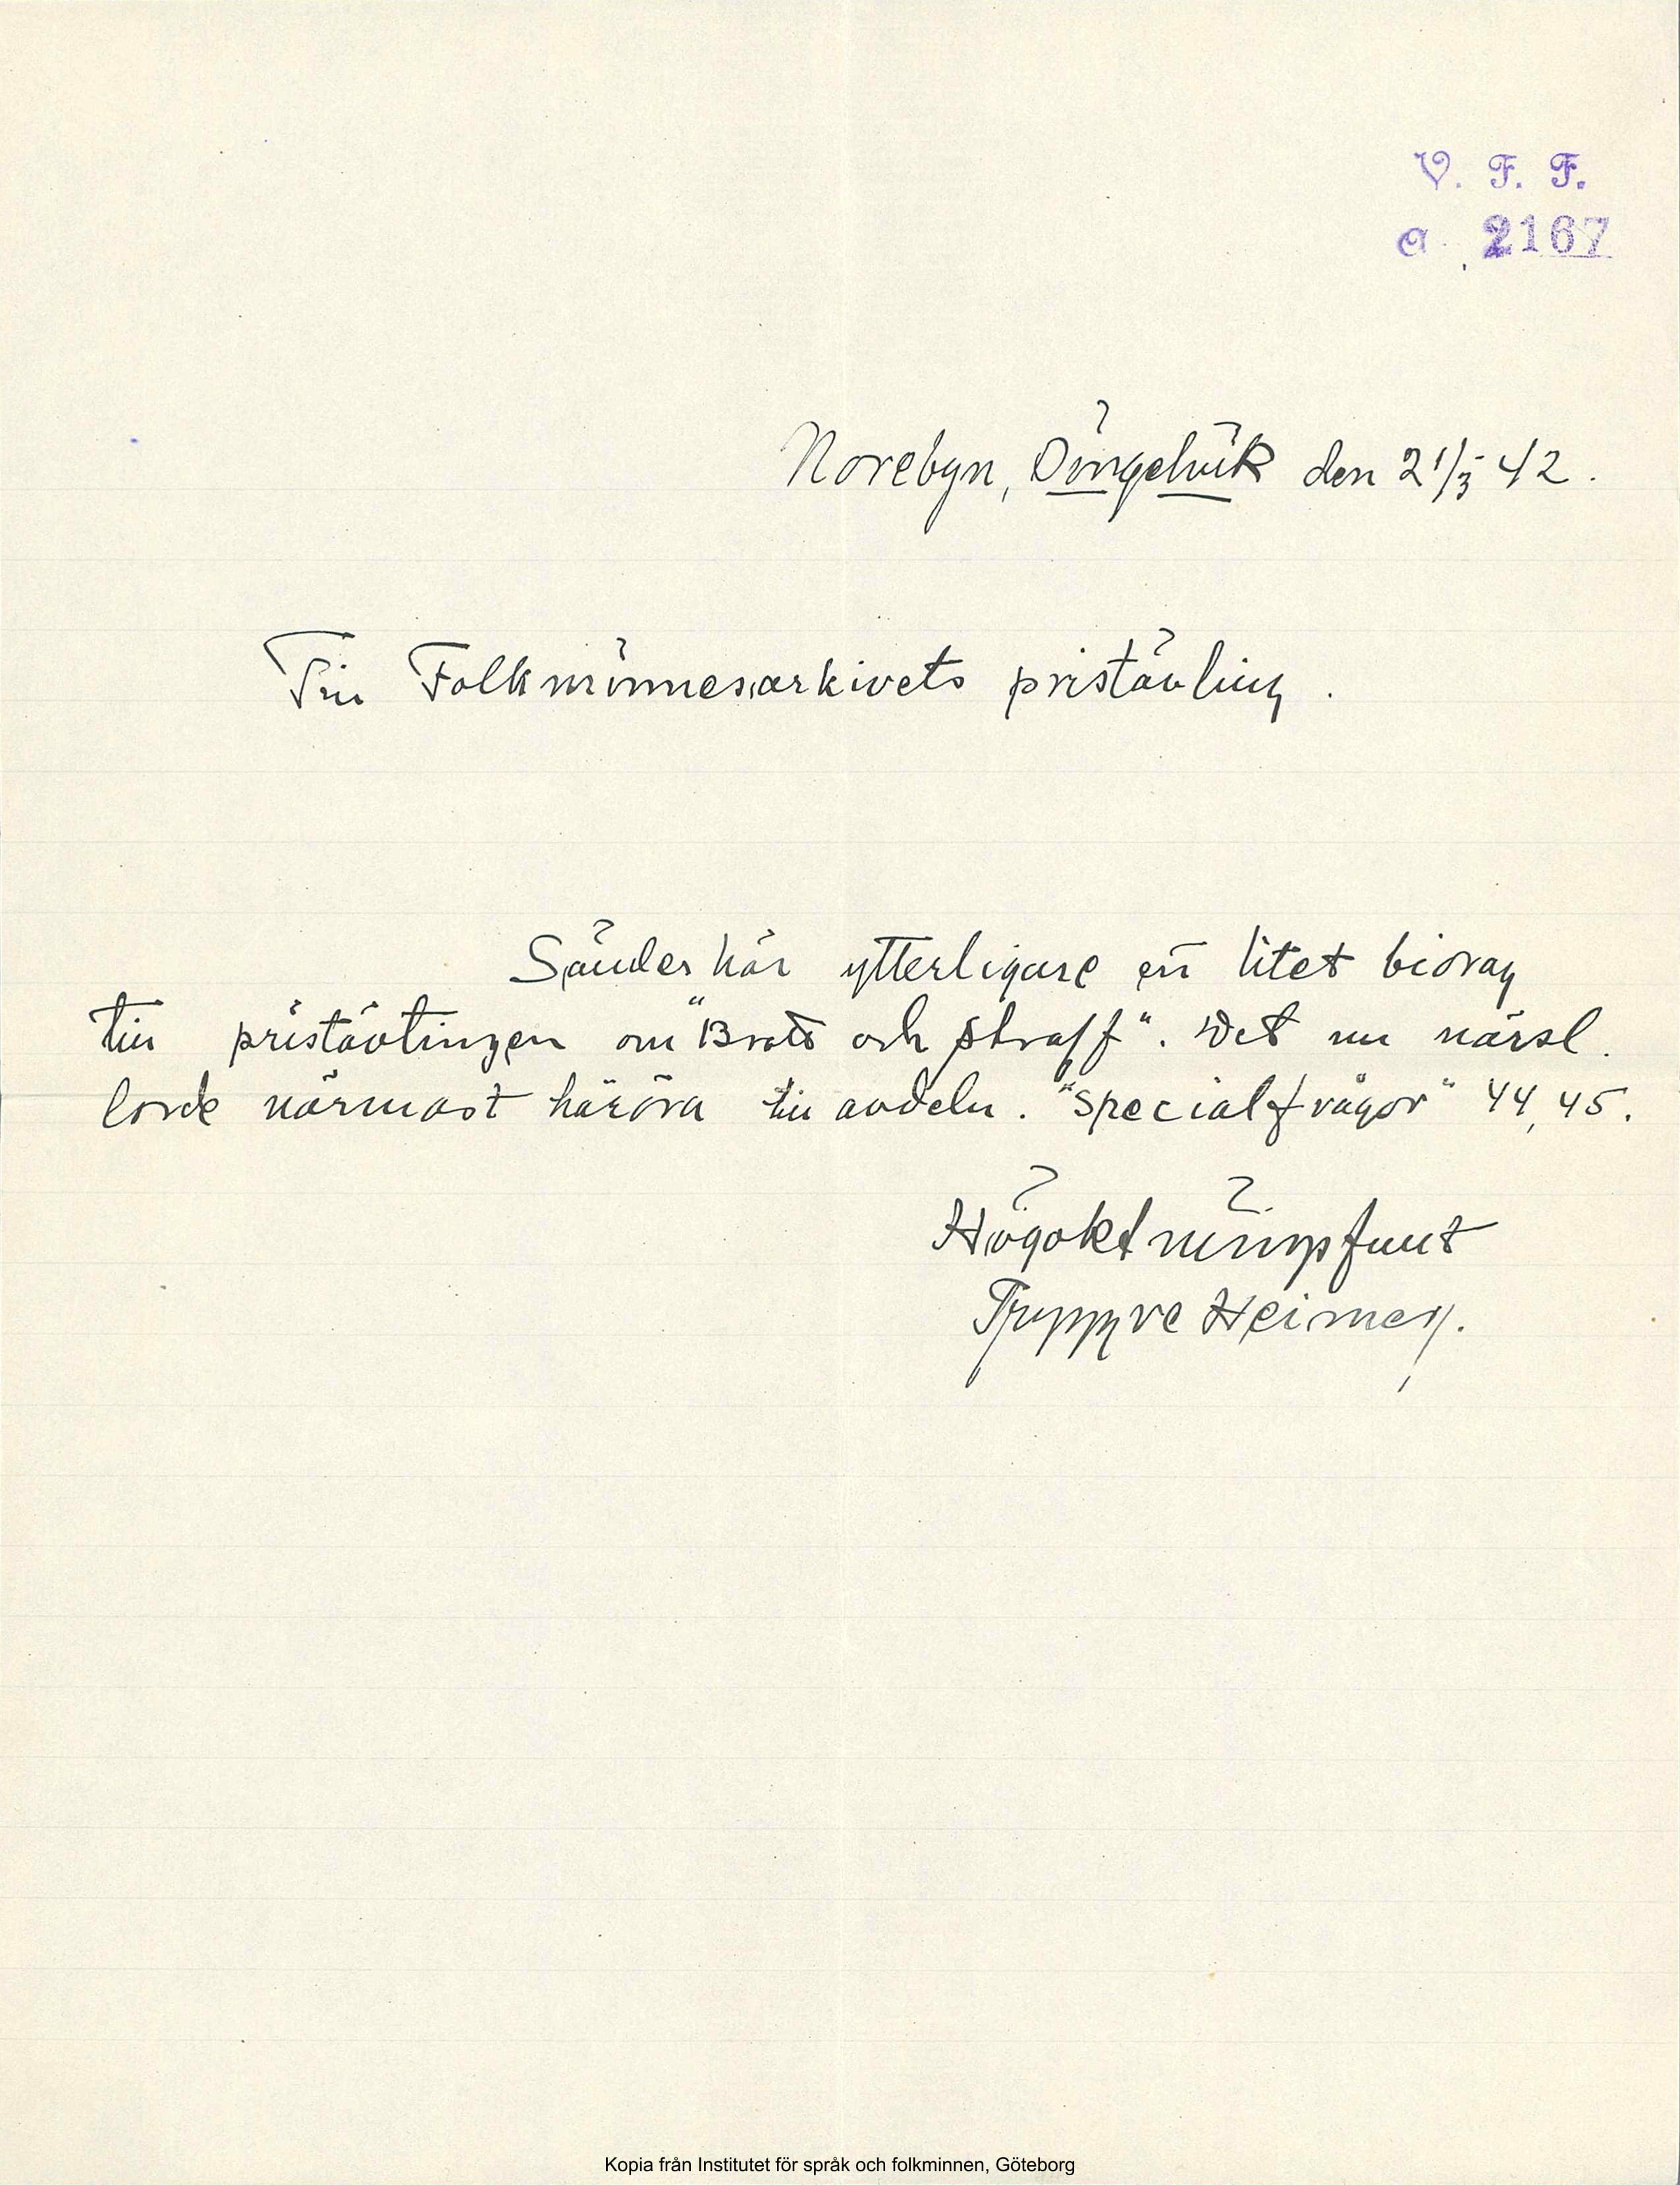 V. F. F.
a. 2167
Norebyn, Dingelvik den 21/3 42.
Till Folkminnesarkivets pristävling.
Sänder här ytterligare ett litet bidrag
till pristävlingen om "Brott och straff". Det nu närsl.
torde närmast häröra till avdeln. "specialfrågor" 44, 45.
Högaktningsfullt
Tryggve Heimer.
Kopia från Institutet för språk och folkminnen, Göteborg